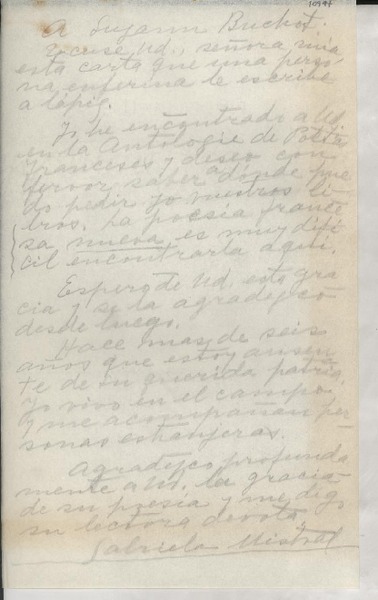 A Suzann Buchot.
Excuse Ud., señora mía
esta carta que una perso-
na enferma le escribe
a lápiz.
Yo he encontrado a Ud.
en la Antologie de Poètes
franceses y deseo con
fervor saber a donde pue-
do pedir yo vuestros li-
bros. La poesía france-
sa nueva es muy difí-
cil encontrarla aquí.
Espero de Ud. esta gra-
cia y se la agradezco
desde luego.
Hace mas de seis
años que estoy ausen-
te de su querida patria.
Yo vivo en el campo
y me acompañan per-
sonas extranjeras.
Agradezco profunda-
mente a Ud. la gracia
de su poesía y me digo
su lectora devota
Gabriela Mistral